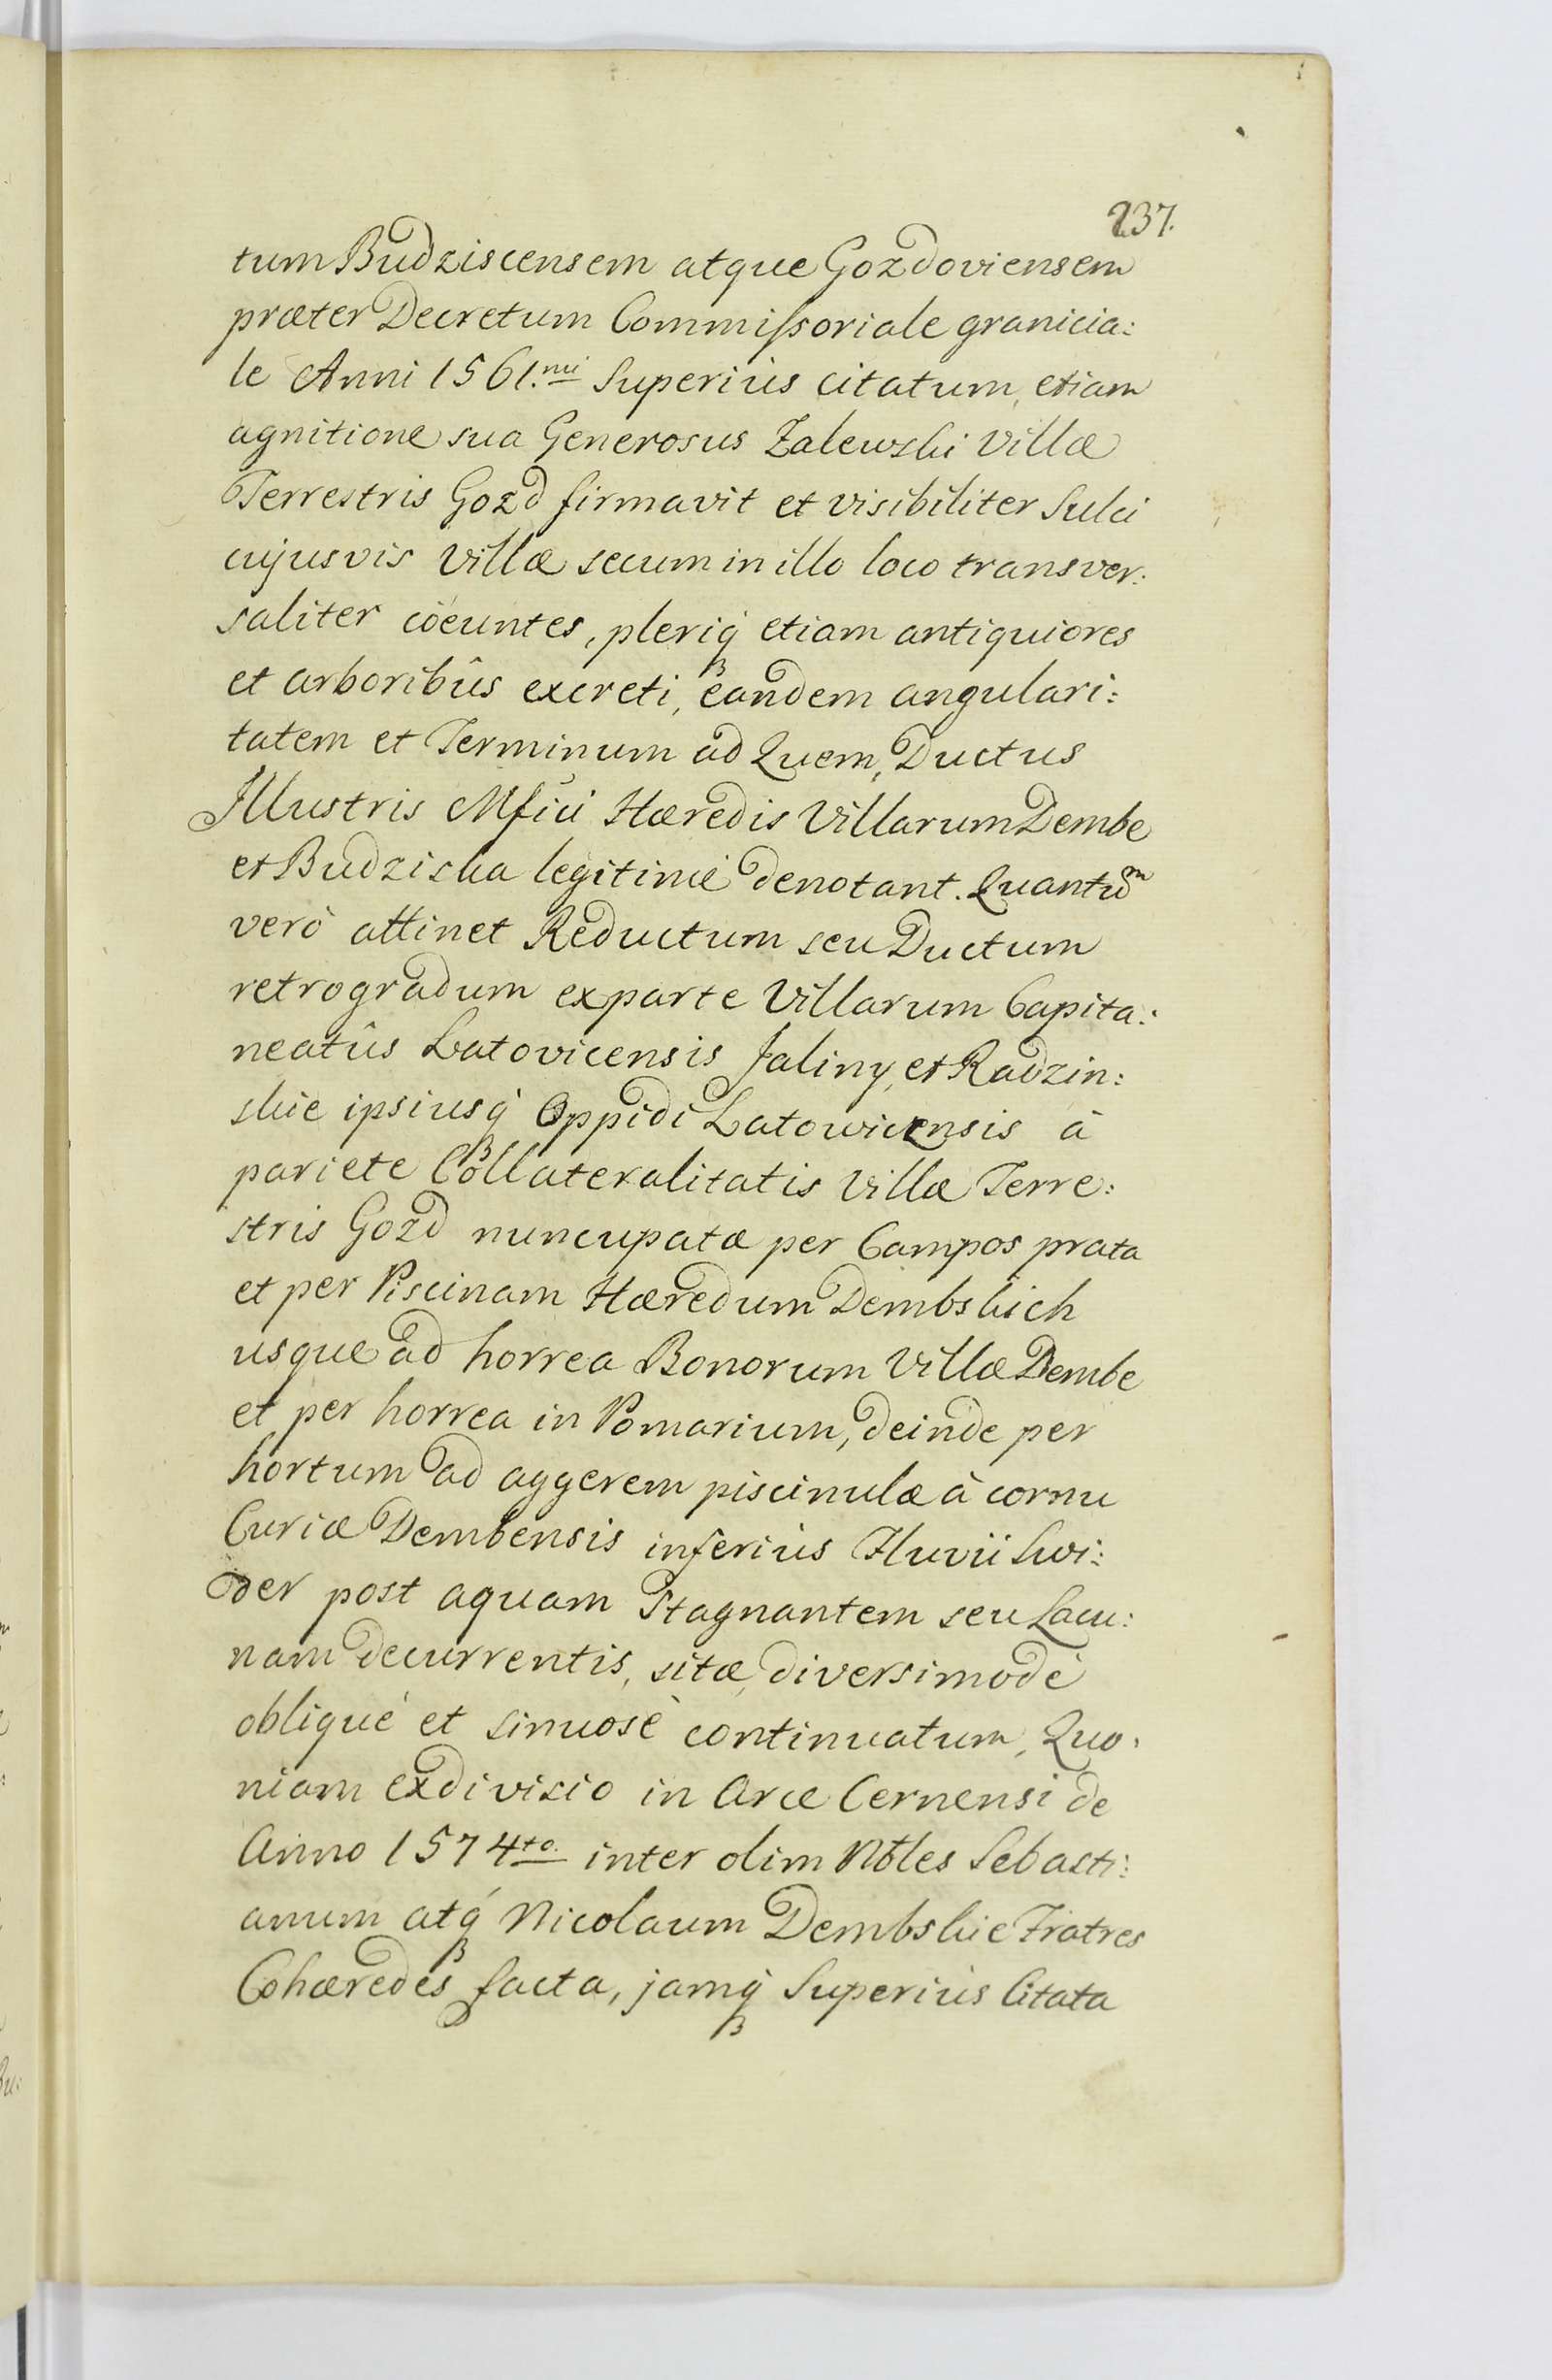 237.
tum Budziscensem atque Gozdoviensem
præter Decretum Commissoriale granicia:
le Anni 1561.mi Superiùs citatum, etiam
agnitione sua Generosus Zalewski Villæ
Terrestris Gozd firmavit et visibiliter Sulci
cujusvis Villæ secum in illo loco transver:
saliter coëuntes, pleriq́ꝫ etiam antiquiores
et arboribûs excreti, eandem angulari:
tatem et Terminum ad Quem, Ductus
Illustris Mfici Hæredis Villarum Dembe
et Budziska legitimè denotant. Quantum
verò attinet Reductum seu Ductum
retrogradum ex parte Villarum Capita:
neatûs Latovicensis Jaliny, et Radzin:
skie ipsiusq́ꝫ Oppidi Latowicensis à
pariete Collateralitatis Villæ Terre:
stris Gozd nuncupatæ per Campos prata
et per Piscinam Hæredum Dembskich
usque ad horrea Bonorum Villæ Dembe
et per horrea in Pomarium, deinde per
hortum ad aggerem piscinulæ à cornu
Curiæ Dembensis inferiùs Fluvii Swi:
der post aquam Stagnantem seu Lacu:
nam decurrentis, sitæ, diversimodè
obliquè et sinuosè continuatum, Quo:
niam exdivisio in Arce Cernensi de
Anno 1574to. inter olim Nbles Sebasti:
anum atq́ꝫ Nicolaum Dembskie Fratres
Cohæredes facta, jamq́ꝫ Superiùs Citata